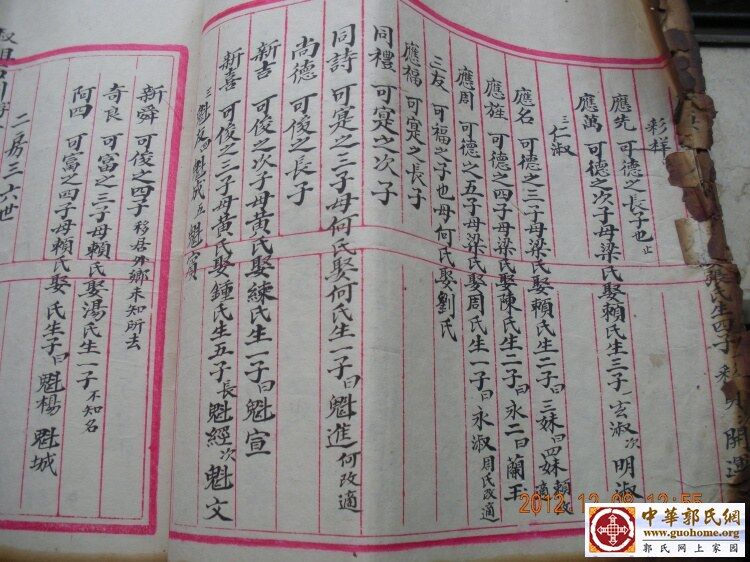 彩祥
張氏生四子
開運
應先 可德之長子也 止
應萬 可德之次子母梁氏娶賴氏生三子 玄淑 次 明淑
三 仁淑
應名 可德之三子母梁氏娶賴氏生二子曰三妹曰四妹
應旌 可德之四子母梁氏娶陳氏生二子曰永二曰蘭玉
應周 可德之五子母梁氏娶周氏生一子曰永淑 周氏改適
三友 可福之子也母何氏娶劉氏
應福 可寔之長子
同禮 可寔之次子
同詩 可寔之三子母何氏娶何氏生一子曰魁進 何改適
尚德 可俊之長子
新吉 可俊之次子母黃氏娶練氏生一子曰魁宣
新喜 可俊之三子母黃氏娶鍾氏生五子長魁經次魁文
三魁友四魁成五魁甯
新舜 可俊之四子 移居外鄉未知所去
奇良 可富之三子母賴氏娶湯氏生一子 不知名
阿四 可富之四子母賴氏娶 氏生子曰魁楊 魁城
二房三六世
2012.12.08 12:55
中華郭氏網
www.guohome.org
郭氏网上家园